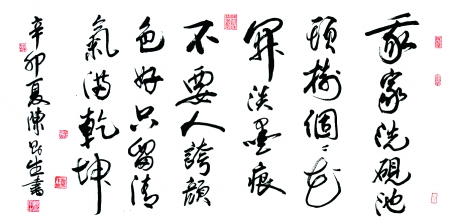 我家洗硯池
頭樹個々花
開淡墨痕
不要人誇顏
色好只留清
氣滿乾坤
辛卯夏陳生書